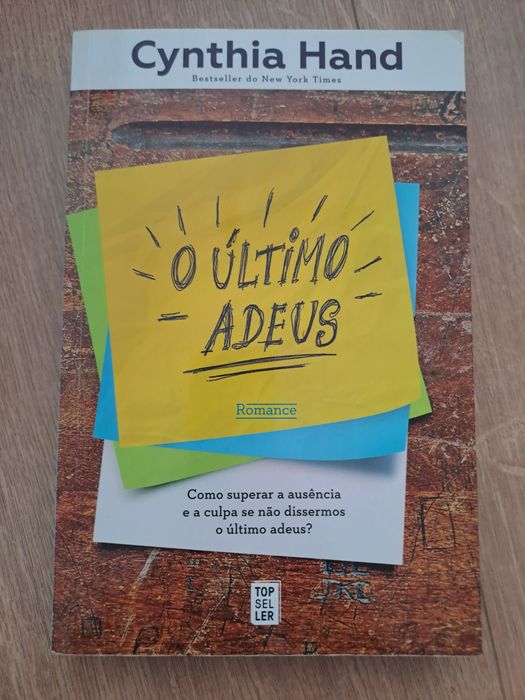 Cynthia Hand
Bestseller do New York Times
O ÚLTIMO
ADEUS
Romance
Como superar a ausência
e a culpa se não dissermos
o último adeus?
TOP
SEL
LER